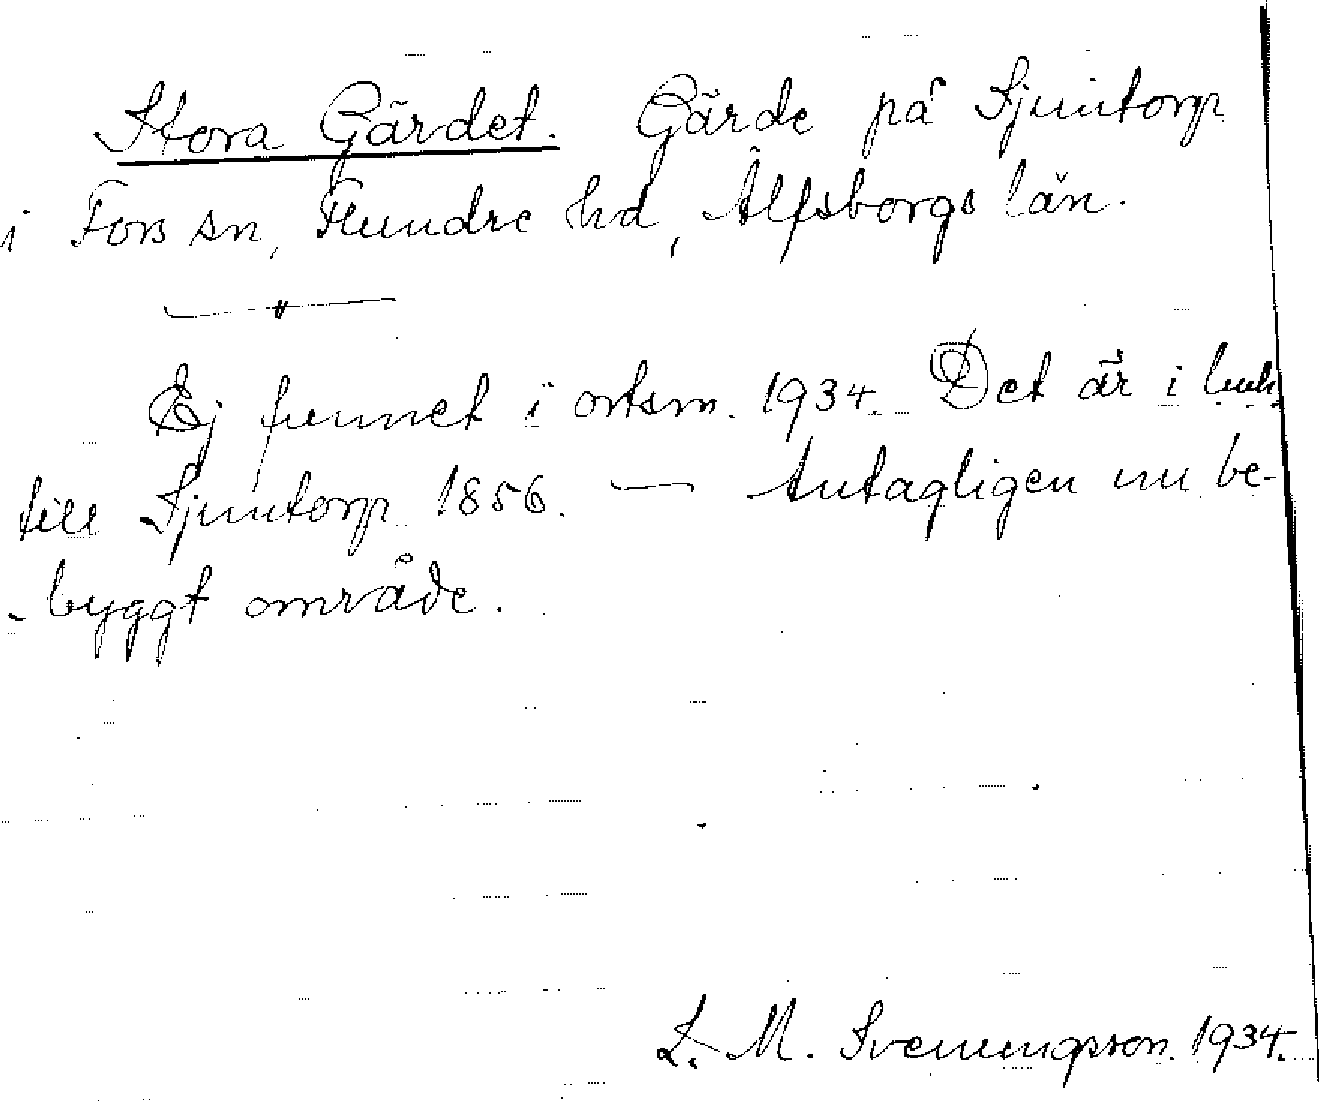 Stora Gärdet. Gärde på Sjuntorp
i Fors sn, Flundre hd, Älfsborgs län.
Ej funnet i ortsm. 1934. Det är i
till Sjuntorp 1856. — Antagligen nu be-
byggt område.
L. M. Svenungsson. 1934.